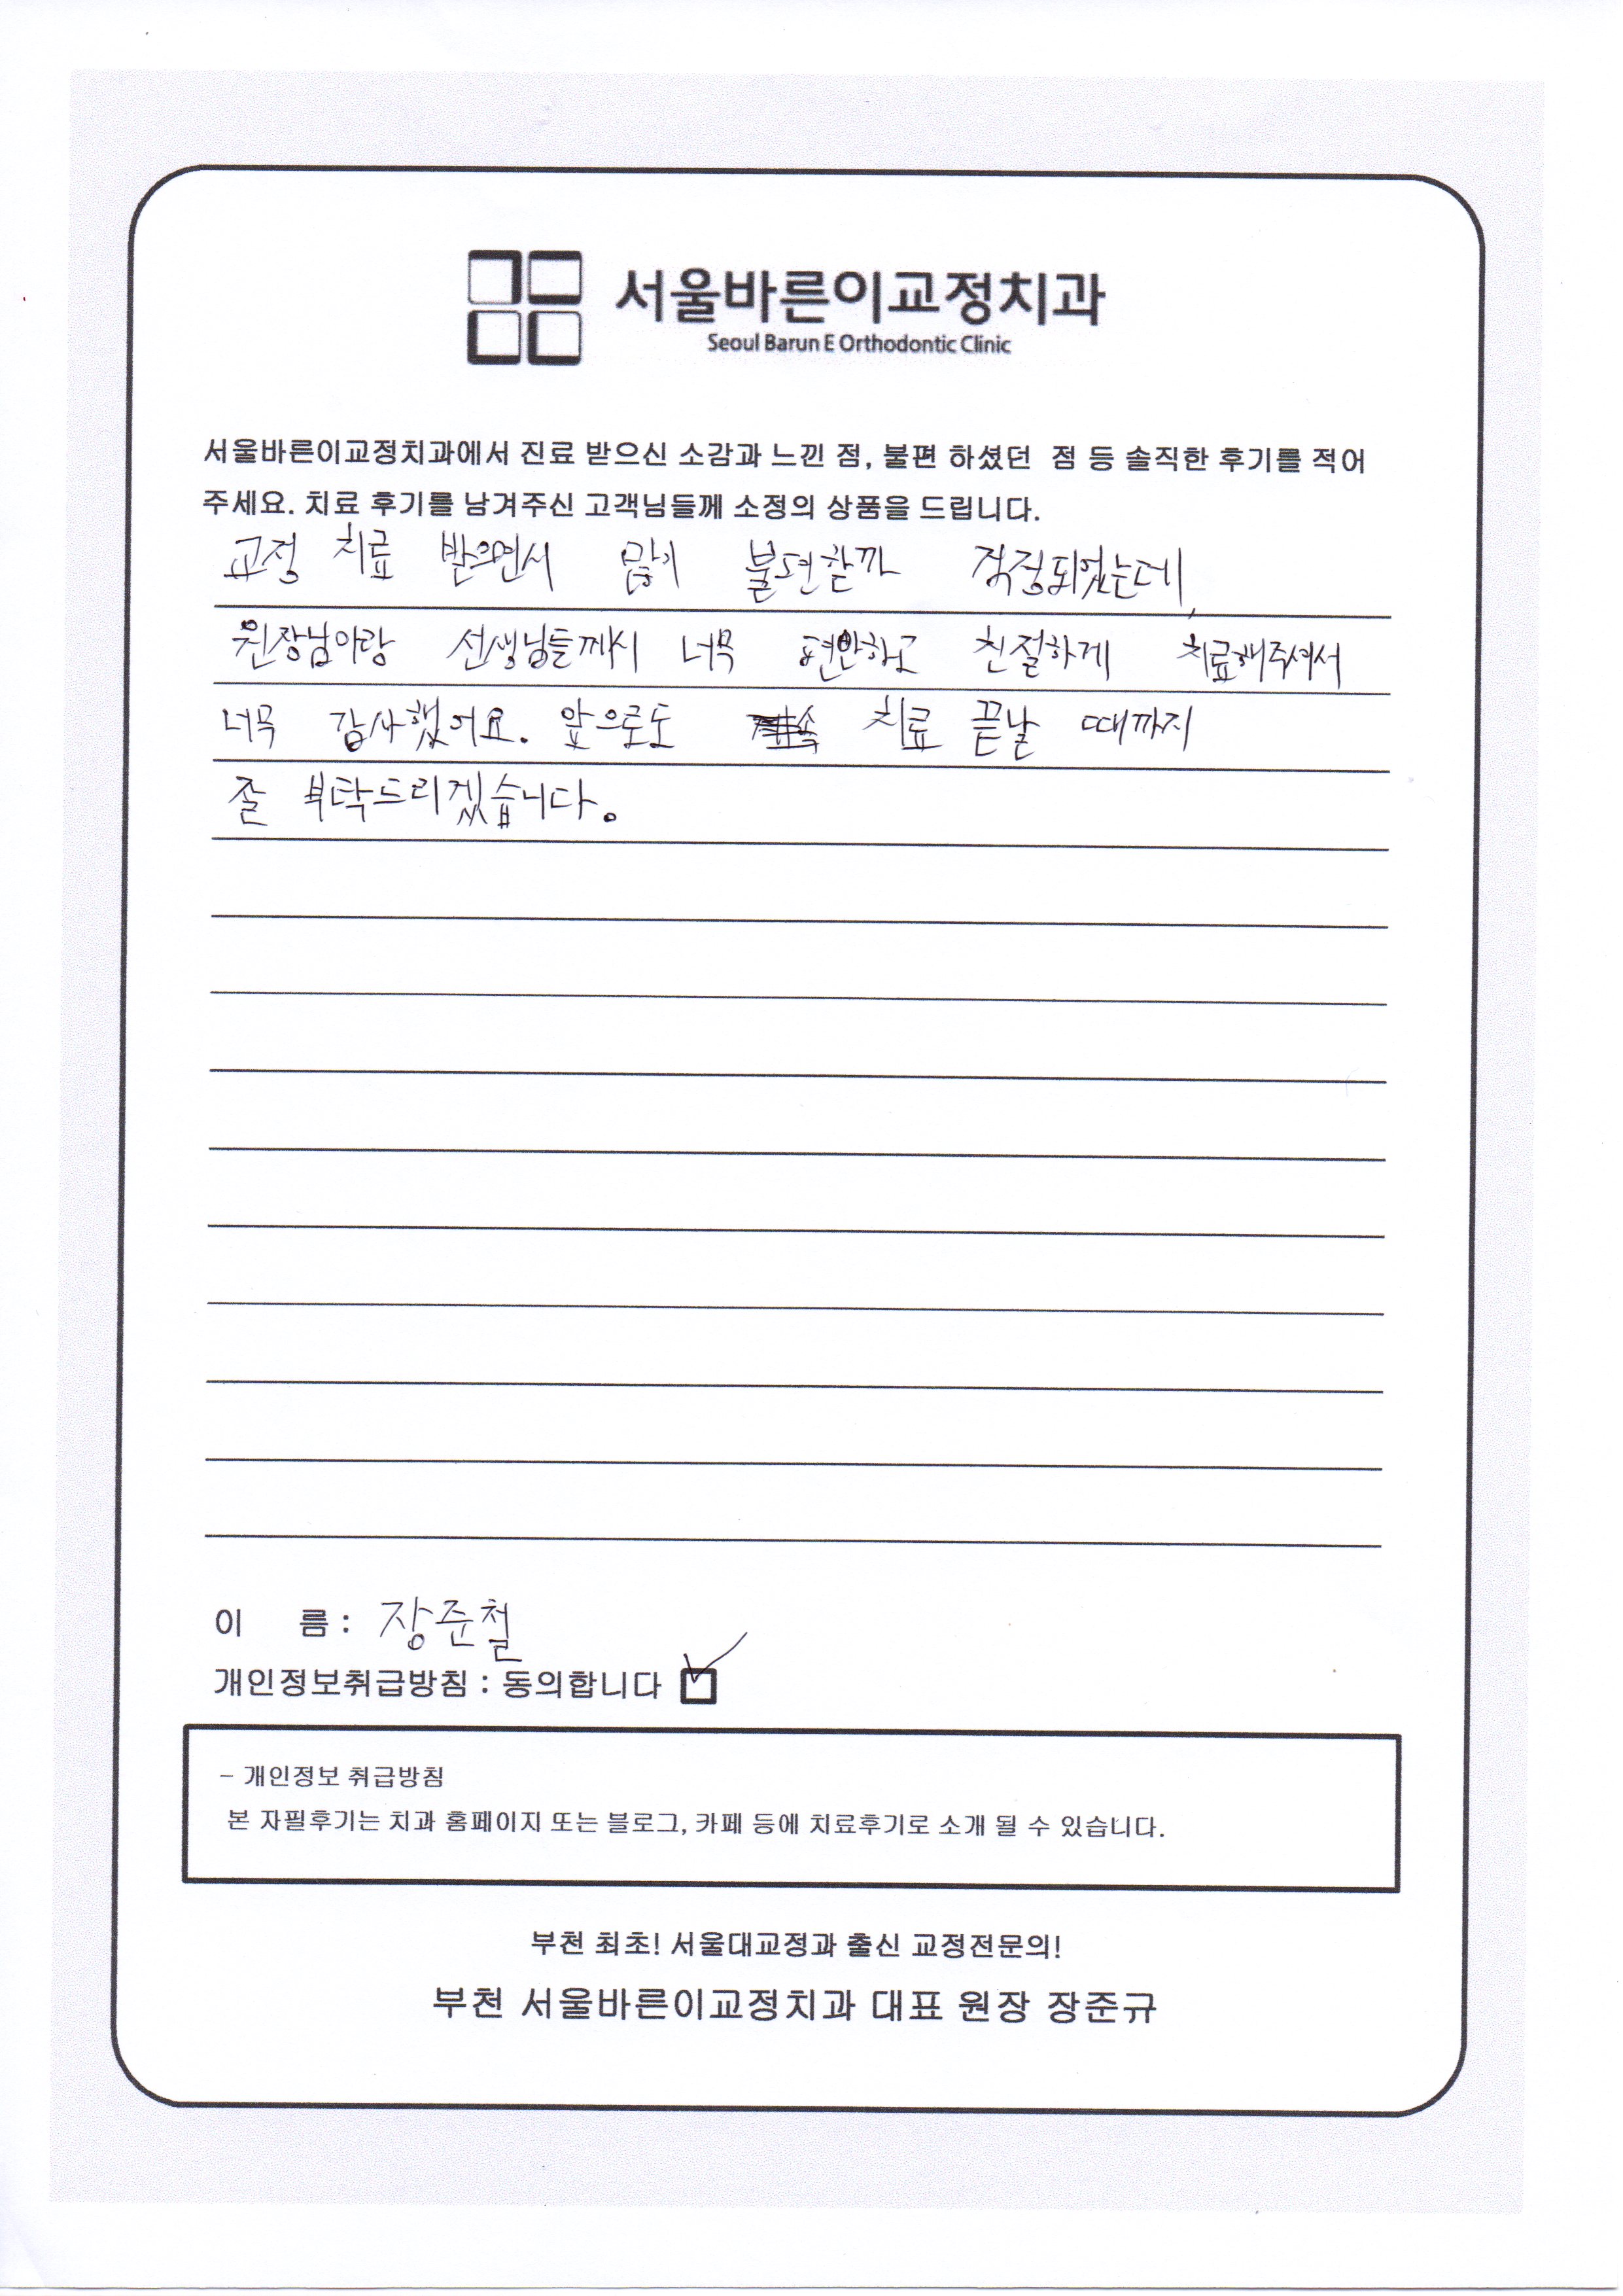 서울바른이교정치과
Seoul Barun E Orthodontic Clinic
서울바른이교정치과에서 진료 받으신 소감과 느낀 점, 불편 하셨던 점 등 솔직한 후기를 적어
주세요. 치료 후기를 남겨주신 고객님들께 소정의 상품을 드립니다.
교정 치료 받으면서 많이 불편할까 걱정되었는데,
원장님이랑 선생님들께서 너무 편안하고 친절하게 치료해주셔서
너무 감사했어요. 앞으로도 치료 끝날 때까지
잘 부탁드리겠습니다.
이 름 : 장준철
개인정보취급방침 : 동의합니다
- 개인정보 취급방침
본 자필후기는 치과 홈페이지 또는 블로그, 카페 등에 치료후기로 소개 될 수 있습니다.
부천 최초! 서울대교정과 출신 교정전문의!
부천 서울바른이교정치과 대표 원장 장준규